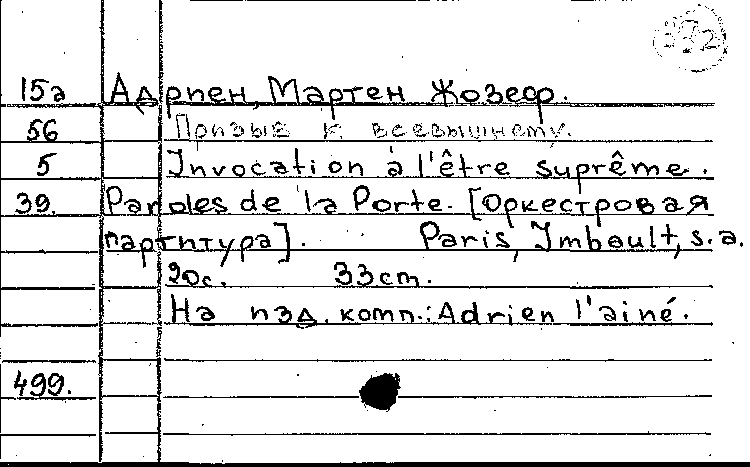 372
15а Адриен, Мартен Жозеф.
56 Призыв к всевышнему.
5 Invocation à l'être suprême.
39. Paroles de la Porte. [Оркестровая
499. партитура]. Paris, Imbault, s.a.
20с. 33cm.
На изд. комп.: Adrien l'ainé.